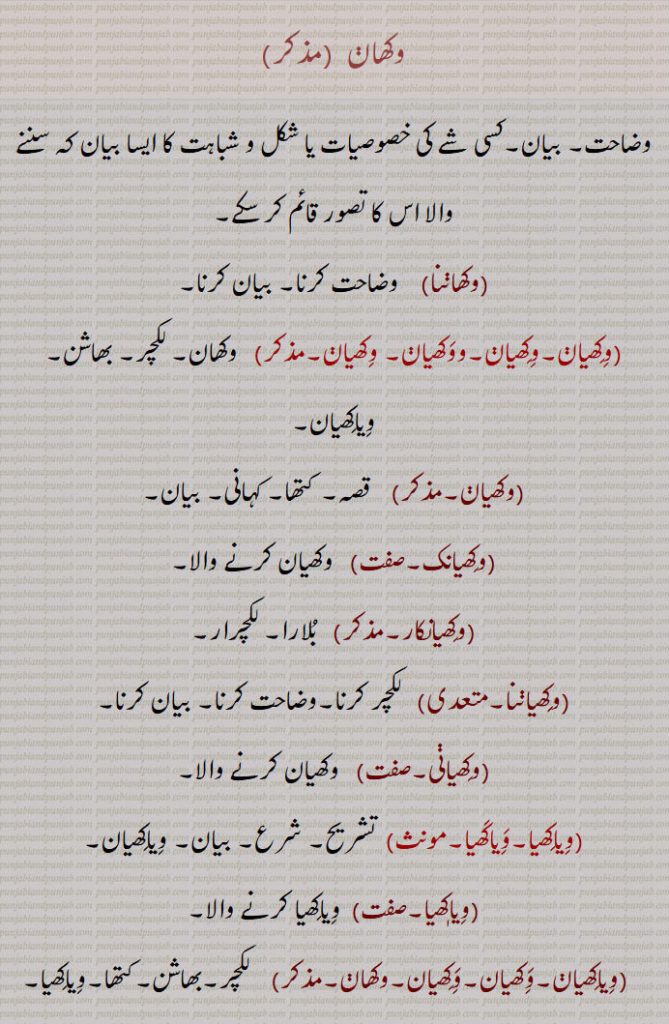 وکھان (مذکر)
وضاحت۔ بیان۔ کسی شے کی خصوصیات یا شکل و شباہت کا ایسا بیان کہ سننے
والا اس کا تصور قائم کر سکے۔
(وکھاݨنا) وضاحت کرنا۔ بیان کرنا۔
(وِکھیاݨ۔ وِکھیان۔ ووَکھیان۔ وِکھیاݨ۔ مذکر) وکھان۔ لکچر۔ بھاشن۔
وِیاکِھیان۔
(وکھیاݨ۔ مذکر) قصہ۔ کتھا۔ کہانی۔ بیان۔
(وِکھیانک۔ صفت) وکھیان کرنے والا۔
(وِکھیانکار۔ مذکر) بُلارا۔ لکچرار۔
(وِکھیاݨنا۔ متعدی) لکچر کرنا۔ وضاحت کرنا۔ بیان کرنا۔
(وِکھیاݨی۔ صفت) وکھیان کرنے والا۔
(وِیاکِھیا۔ وَیاکَھیا۔ مونث) تشریح۔ شرع۔ بیان۔ وِیاکِھیان۔
(وِیاکھیا۔ صفت) وِیاکِھیا کرنے والا۔
(وِیاکِھیاݨ۔ وَکھیان۔ وَکھیان۔ وکھاݨ۔ مذکر) لکچر۔ بھاشن۔ کتھا۔ وِیاکِھیا۔